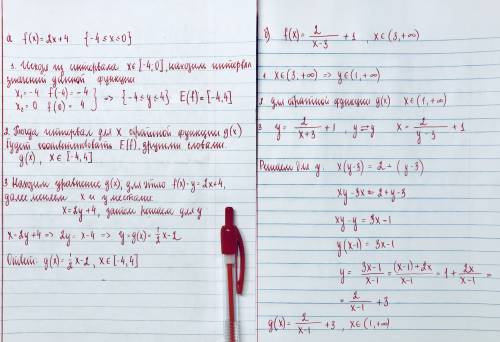 a f(x)=2x+4 {-4≤x≤0}
1. Исходя из интервала x∈[-4,0], находим интервал
значений данной функции
x₁=-4 f(-4)=-4
x₂=0 f(0)=4 } => {-4≤y≤4} E(f)=[-4,4]
2. Тогда интервал для x обратной функции g(x)
будет соответствовать E(f), другими словами
g(x), x∈[-4,4]
3 Находим уравнение g(x), для этого f(x)=y=2x+4,
далее меняем x и y местами
x=2y+4, затем решаем для y
x=2y+4 => 2y=x-4 => y=g(x)=½x-2
Ответ: g(x)=½x-2, x∈[-4,4]
b) f(x)=2/(x-3)+1, x∈(3,+∞)
1 x∈(3,+∞) => y∈(1,+∞)
2 для обратной функции g(x) x∈(1,+∞)
3 y=2/(x+3)+1, y⇄y x=2/(y-3)+1
Решаем для y: x(y-3)=2+(y-3)
xy-3x=2+y-3
xy-y=3x-1
y(x-1)=3x-1
y=(3x-1)/(x-1)=((x-1)+2x)/(x-1)=1+2x/(x-1)=
=2/(x-1)+3
g(x)=2/(x-1)+3, x∈(1,+∞)